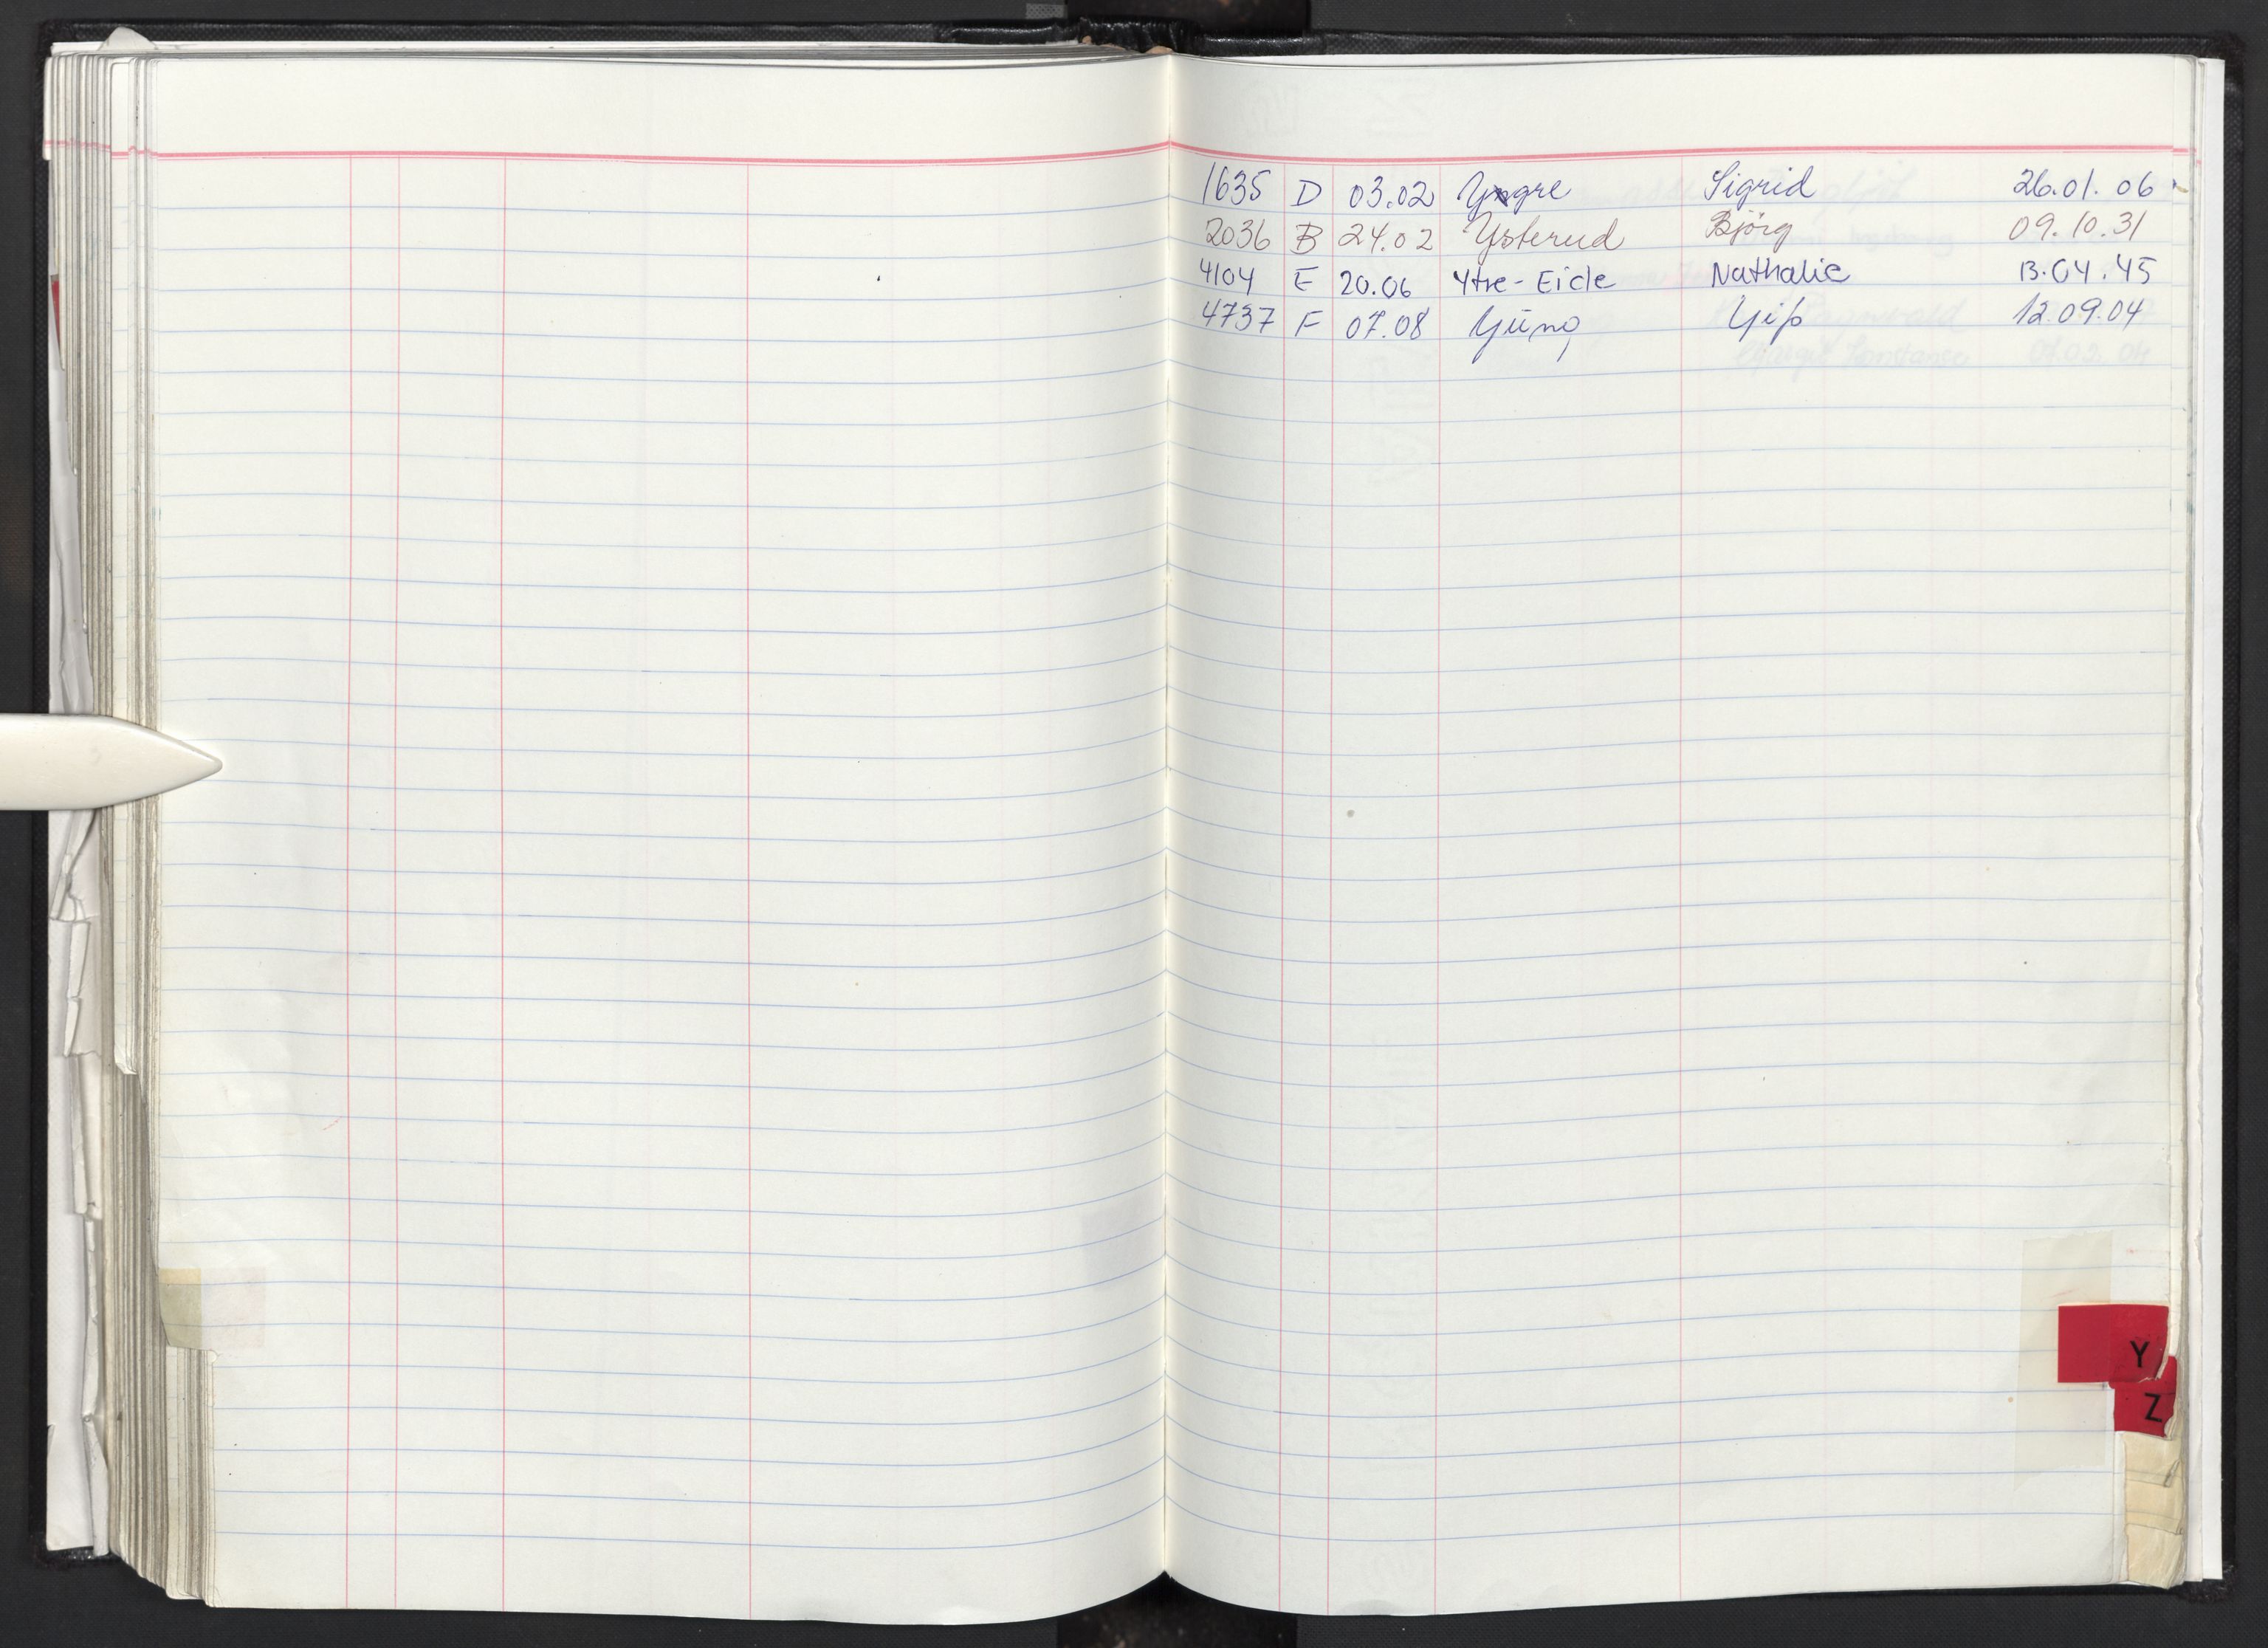 1635 D 03.02 Yngre Sigrid 26.01.06
2036 B 24.02 Ysterud Björg 09.10.31
4104 E 20.06 Ytre-Eide Nathalie 13.04.45
4737 F 07.08 12.09.04
Y
Z